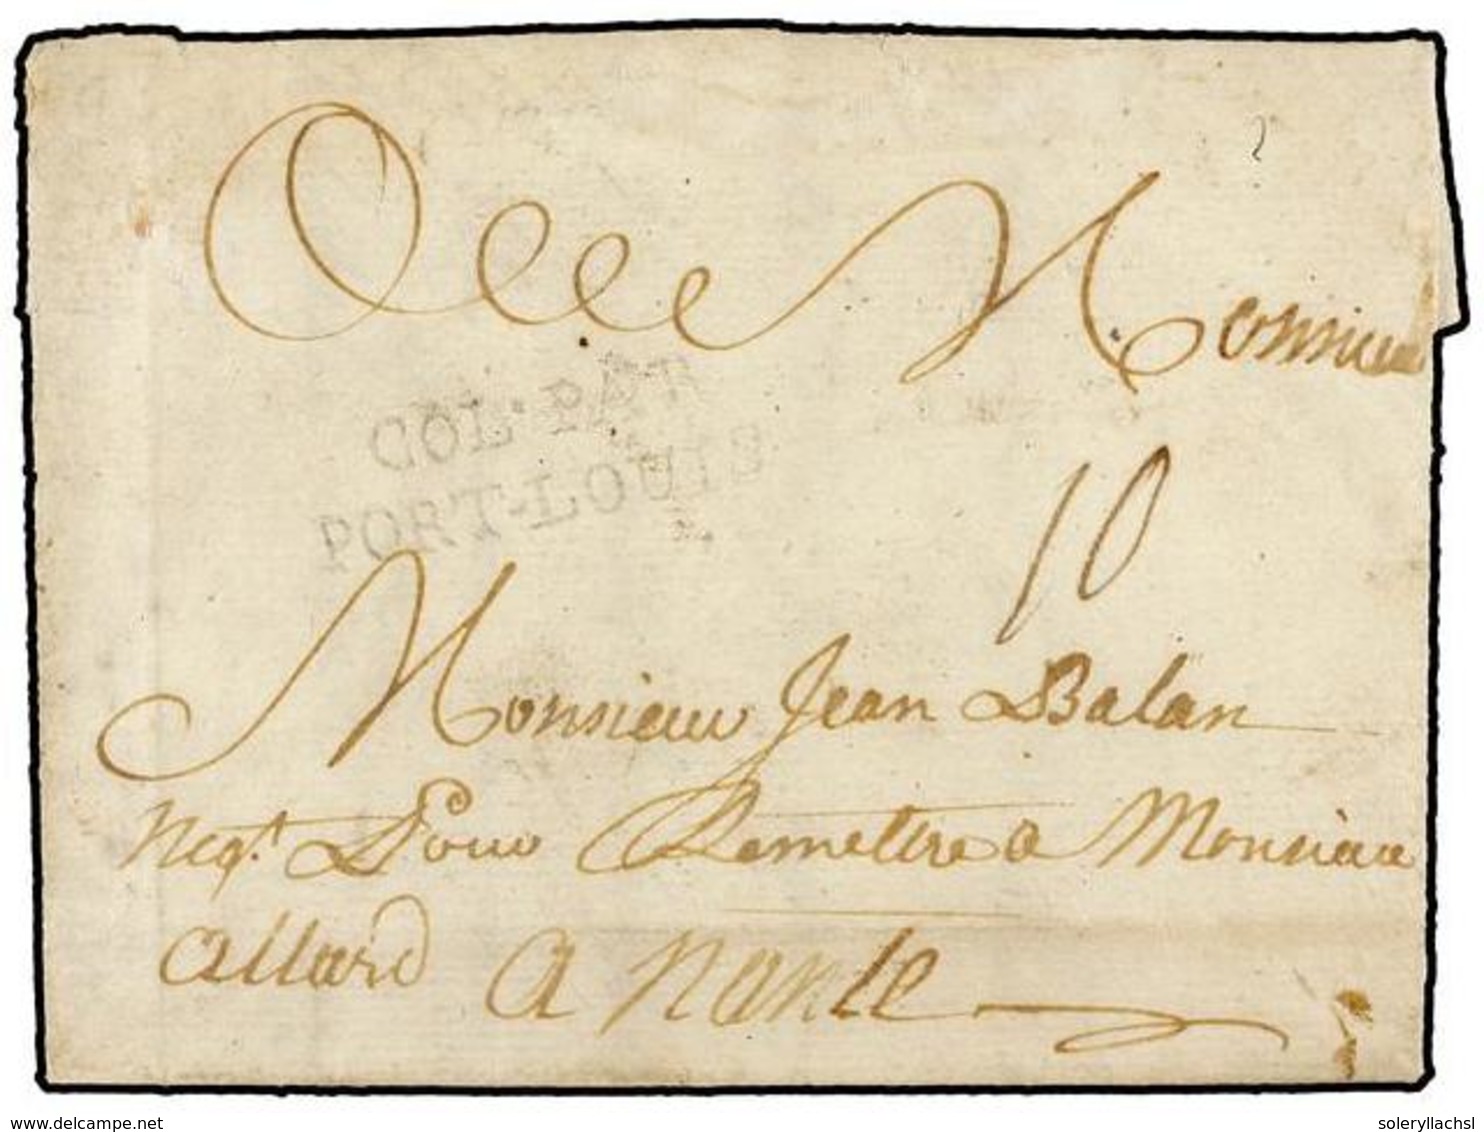 A Monsieur
COL·PAR
PORT-LOUIS
10
Monsieur Jean Balan
Negt. Pour Remettre a Monsieur
allard a Nante
delcampe.net
soleryllachsl